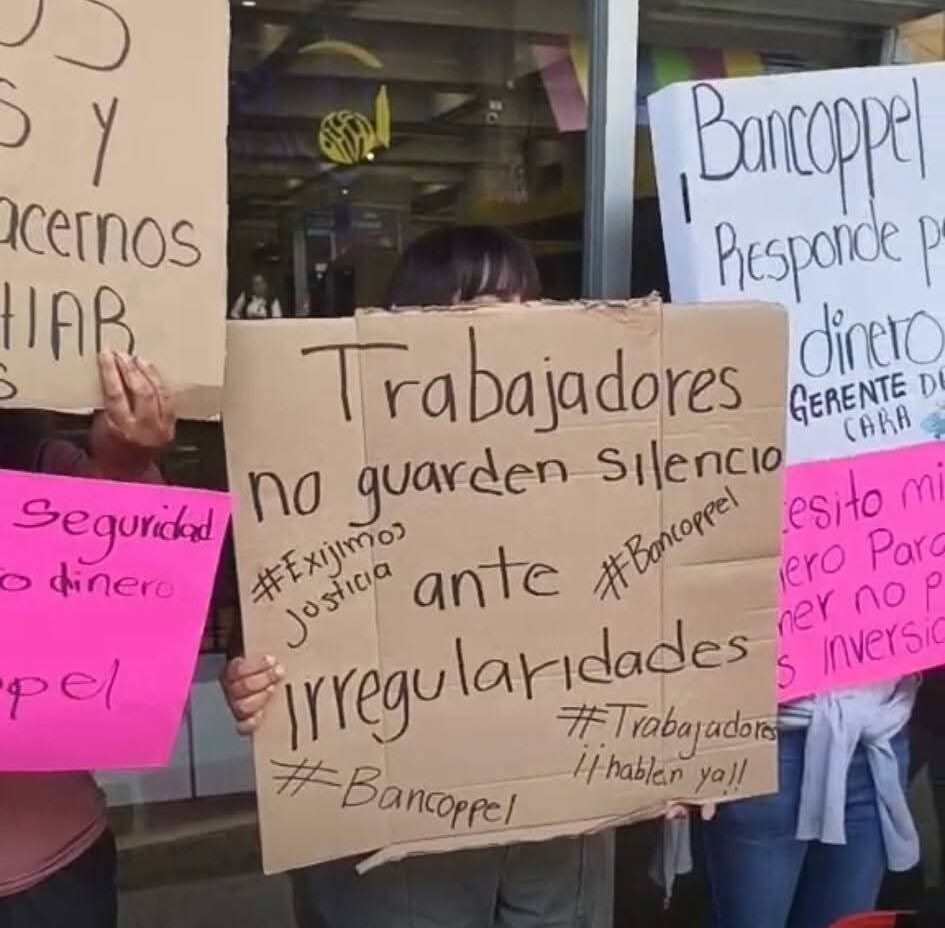 S Y
acernos
HIAR
Seguridad
o dinero
ppel
Trabajadores
no guarden silencio
#Exijimos
Justicia
ante
#Bancoppel
irregularidades
#Trabajadores
¡¡hablen ya!!
#Bancoppel
Bancoppel
Responde p
dinero
GERENTE D
CARA
esito mi
ero Para
er no p
s Inversio